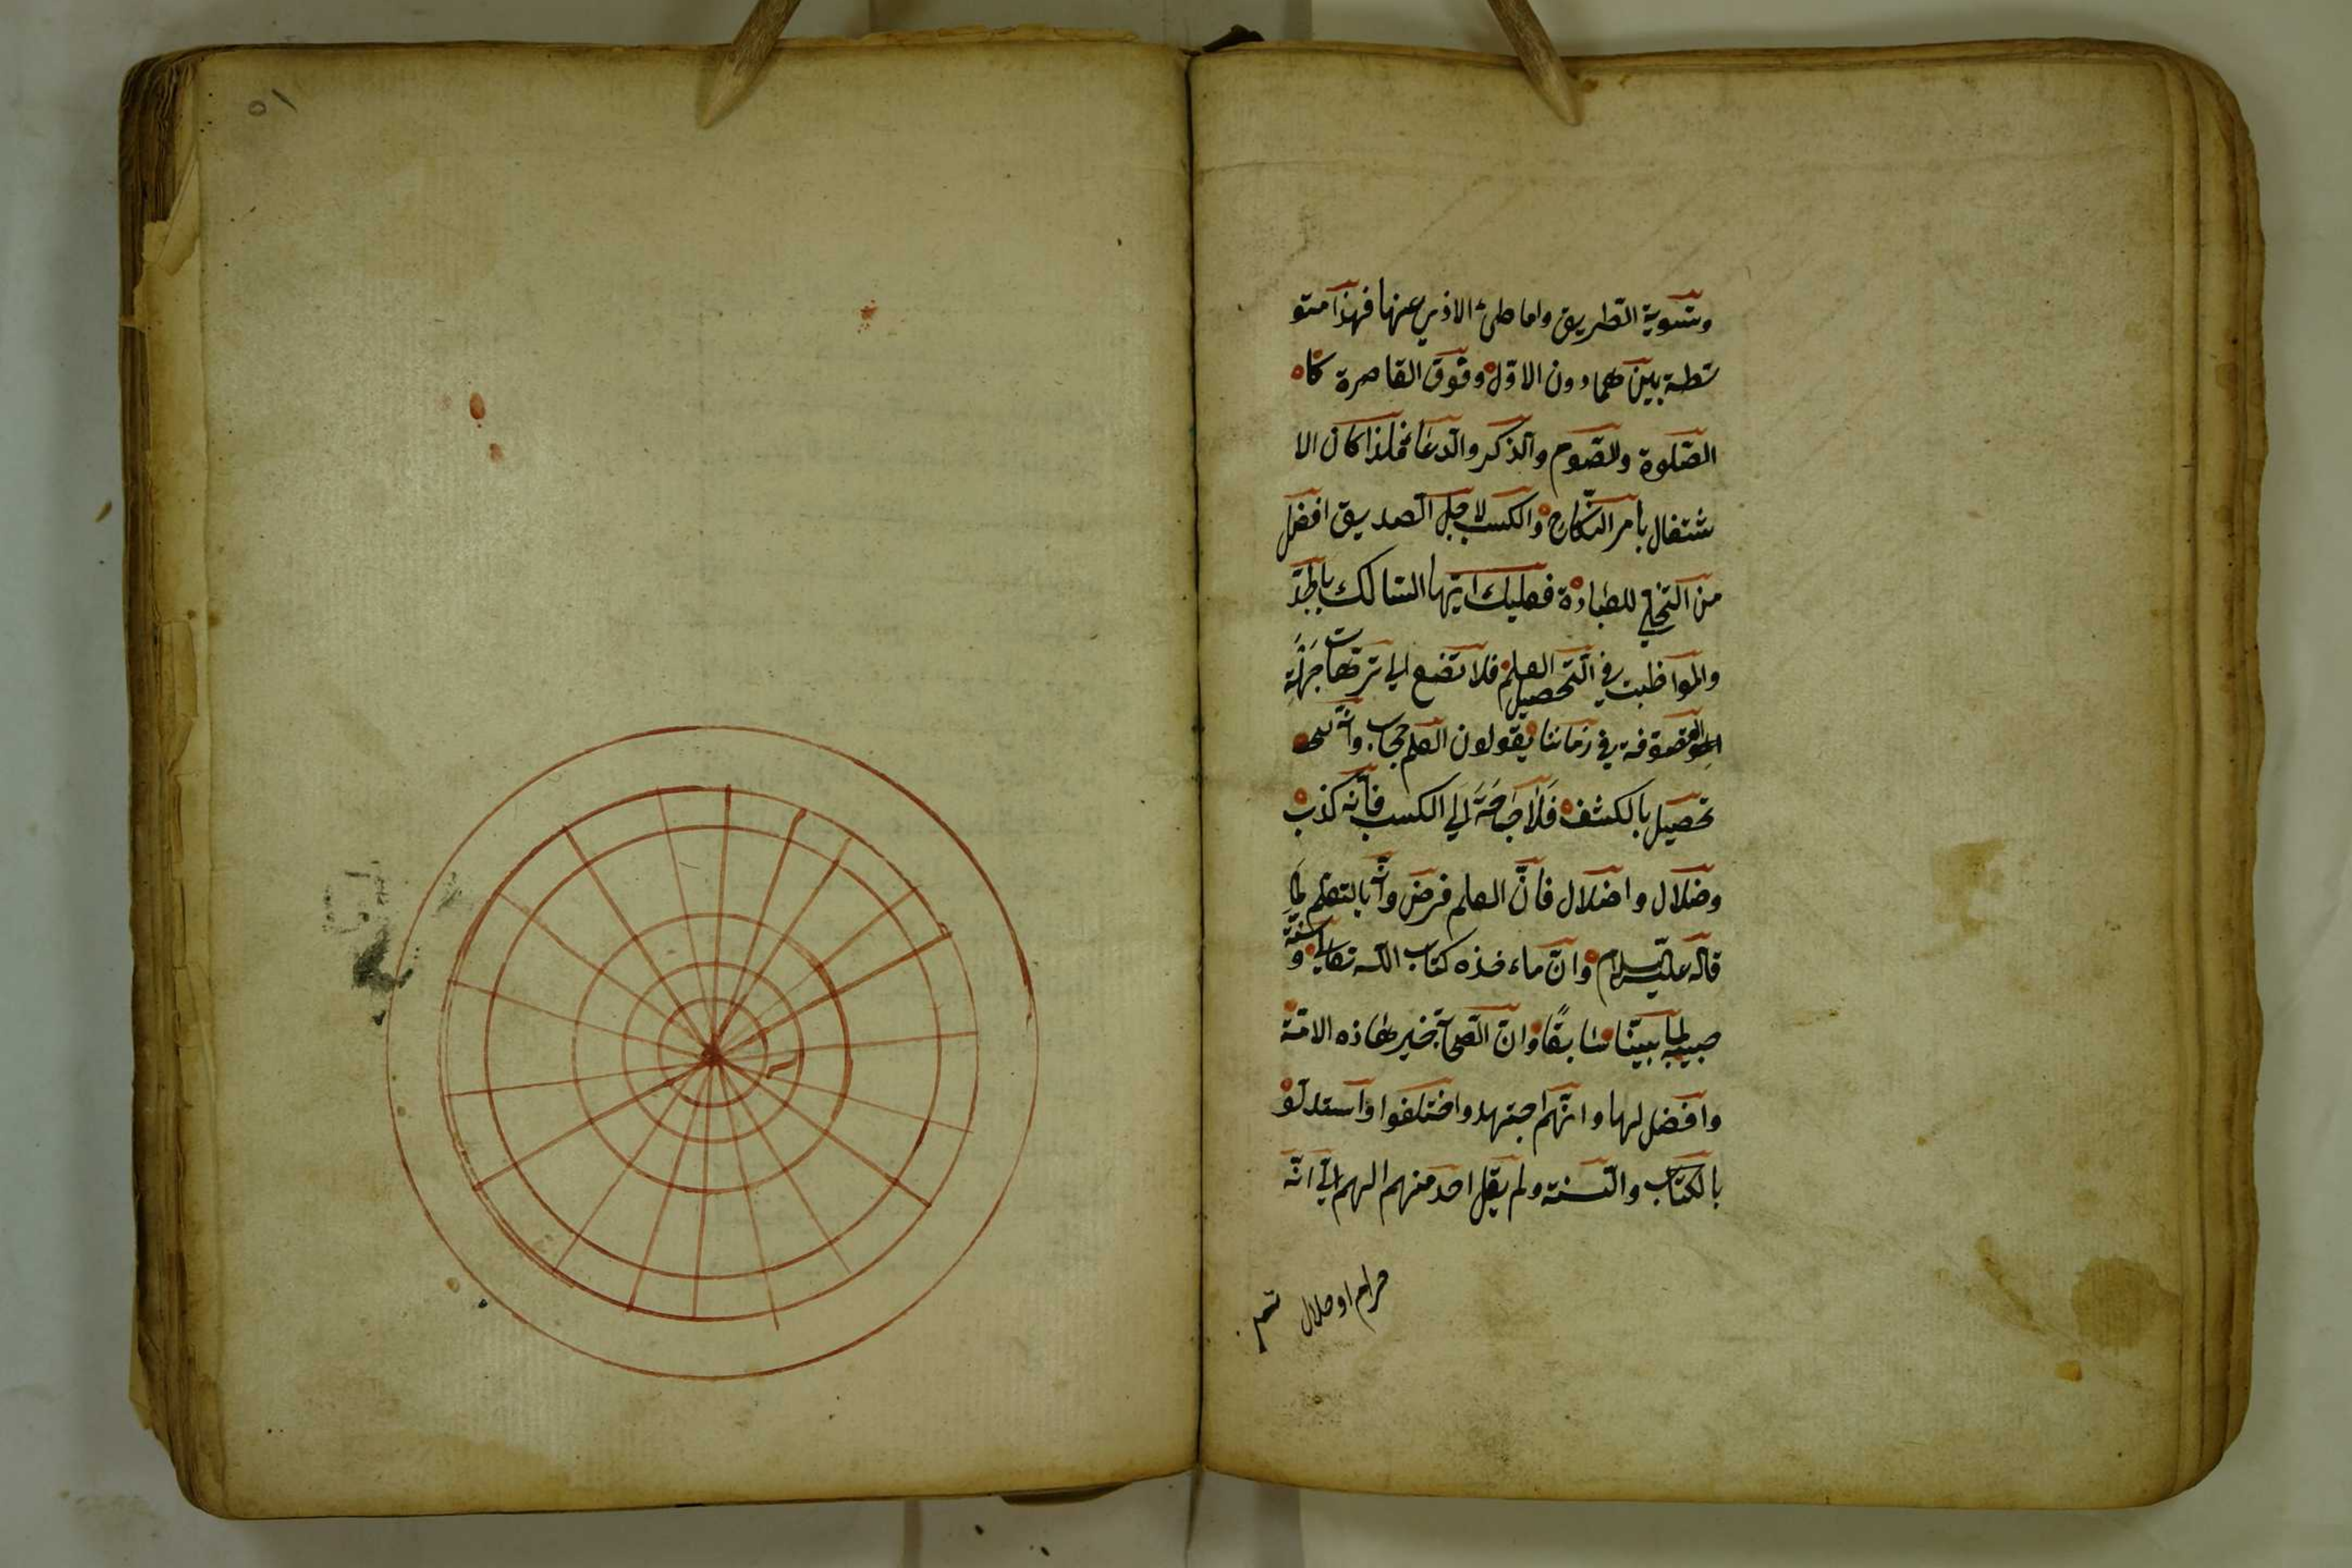 وتسوية الطريق واماطئ الاذي عنها فهذا متو
سطة بينهما دون الاوّل وفوق القاصرة كا
الصّلوة والصّوم والذكر والدعا فلذا كان الا
شتغال بامر النّكاح والكسب لاجل التصديق افضل
من التخلي للعبادة فعليك ايّها السّالك بالجدّ
والمواظبت في التّحصيل العلم فلا تضع الي ترّهات جهلة
المتصوّفة في زماننا يقولون العلم حجاب وانّه
تحصيل بالكشف فَلَا حَاجَةَ اِلَي الكسب فانّه كذب
وضلال واضلال فانّ العلم فرض وانّه بالتعلم لما
قاله عليه السلام وانّ ماءخذه كتاب اللّه تعالي وسنّة
حبيبه لما بيّنا سابقًا وانّ الصّحابة خير هاذه الامّة
وافضلها وانّهم اجتهدوا اختلفوا واستدلّو
بالكتاب والسّنة ولم يقل احد منهم الهم اليّ انّه
حرام او حلال
١٥